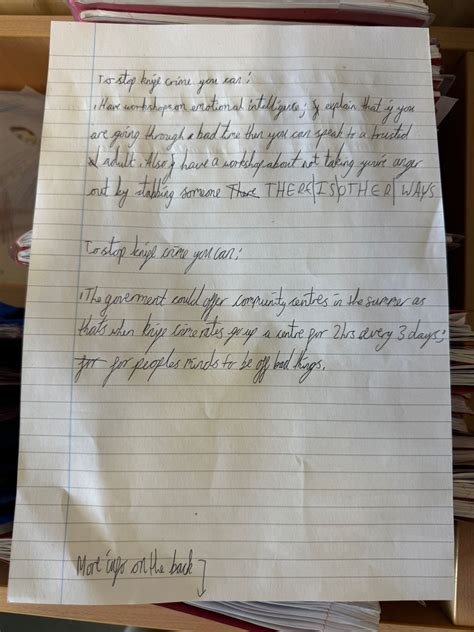 To stop knife crime you can:
Have workshops on emotional intelligence; explain that if you
are going through a bad time then you can speak to a trusted
adult. Also have a workshop about not taking you're anger
out by stabbing someone There THERE|IS|OTHER| WAYS
To stop knife crime you can:
The goverment could offer community centres in the summer as
thats when knife crime rates go up a centre for 2hrs every 3 days;
for for peoples minds to be off bad things.
More info on the back